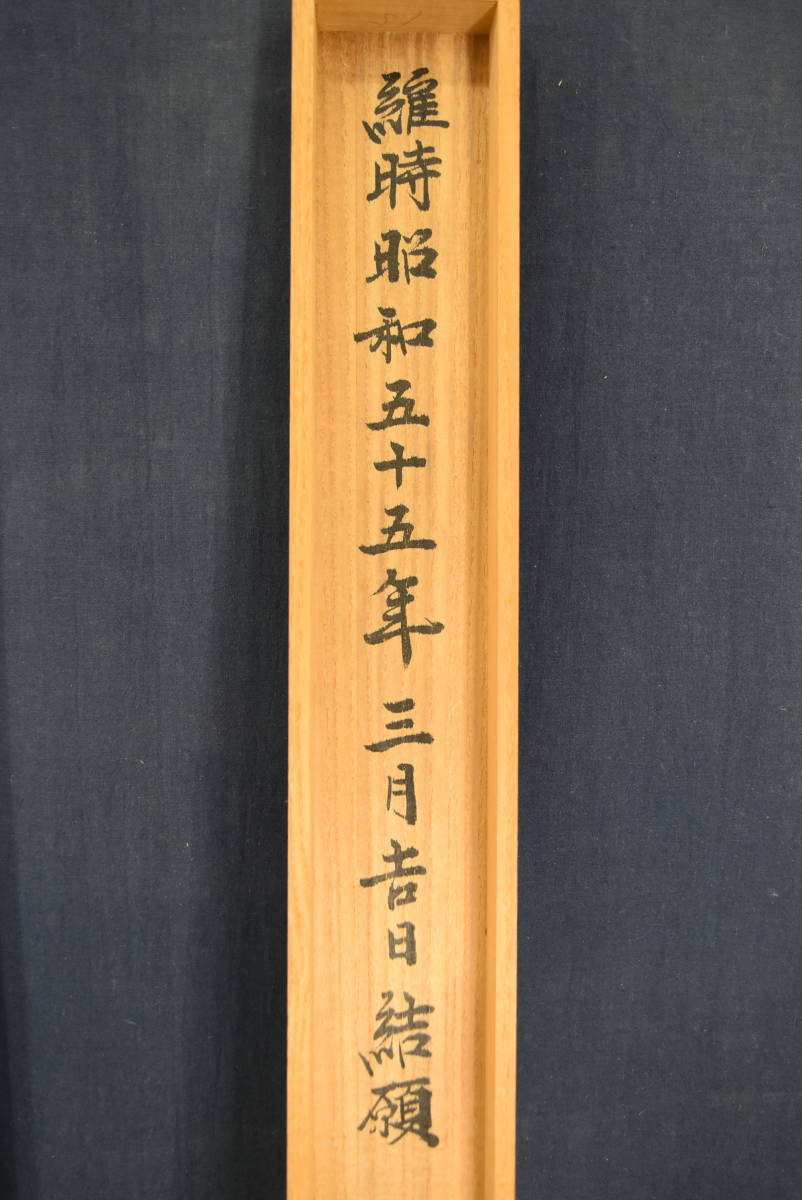 維時昭和五十五年三月吉日結願